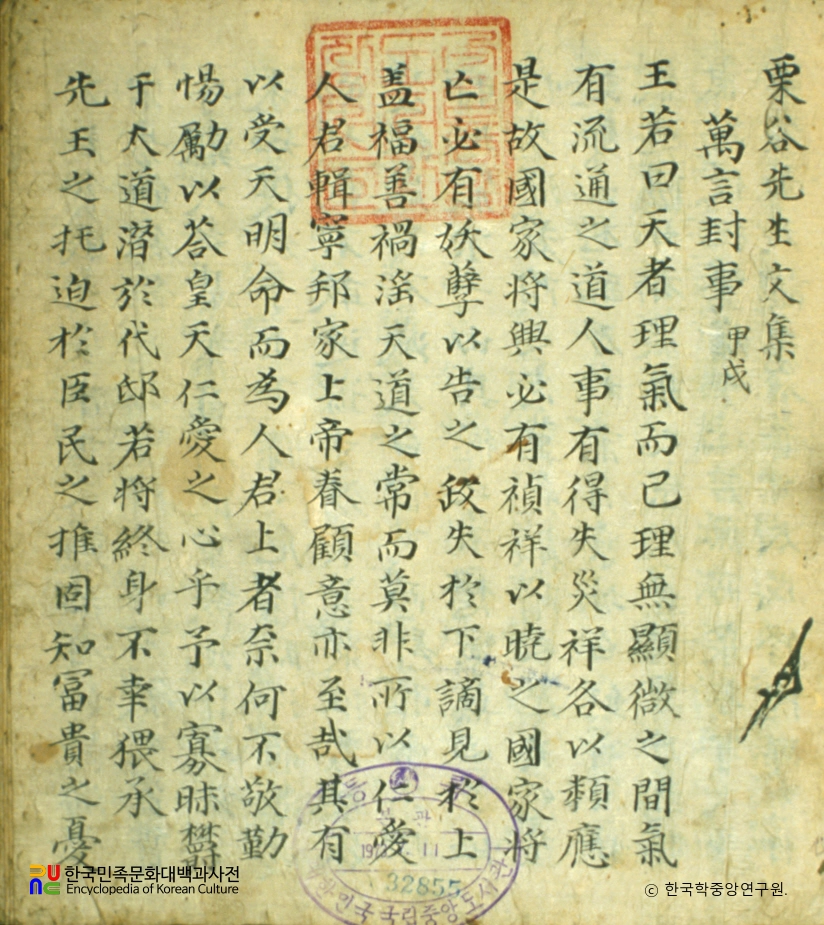 栗谷先生文集
萬言封事 甲戌
王若曰天者理氣而已理無顯微之間氣
有流通之道人事有得失災祥各以類應
是故國家將興必有禎祥以曉之國家將
亡必有妖孼以告之政失於下謫見於上
盖福善禍淫天道之常而莫非所以仁愛
人君輯寧邦家上帝眷顧意亦至哉其有
以受天明命而為人君上者奈何不敬勤
惕勵以荅皇天仁愛之心乎予以寡昧
于大道潛於代邸若將終身不幸猥承
先王之托迫於臣民之推固知富貴之憂
32855
한국민족문화대백과사전
Encyclopedia of Korean Culture
ⓒ 한국학중앙연구원.